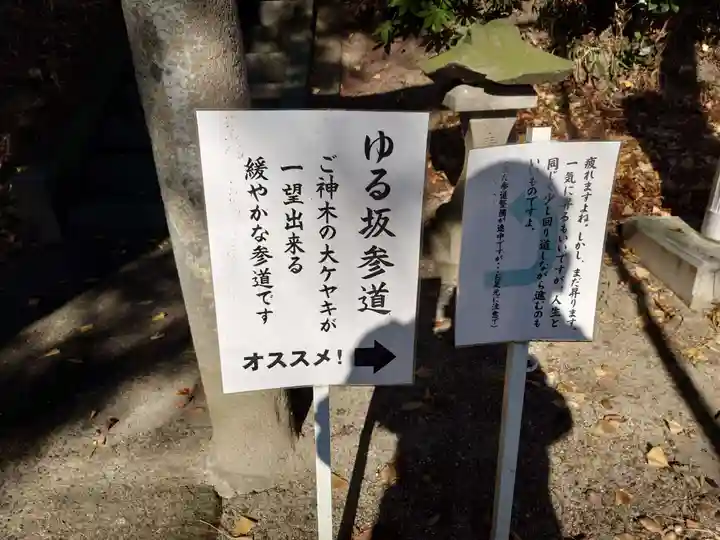 ゆる坂参道
ご神木の大ケヤキが
一望出来る
緩やかな参道です
オススメ!
疲れますよね。しかし、まだ昇ります。
一気に昇るもいいですが、人生と
同じく少し回り道しながら進むのも
いいものですよ。
参道整備が途中ですが・・お足元に注意て)